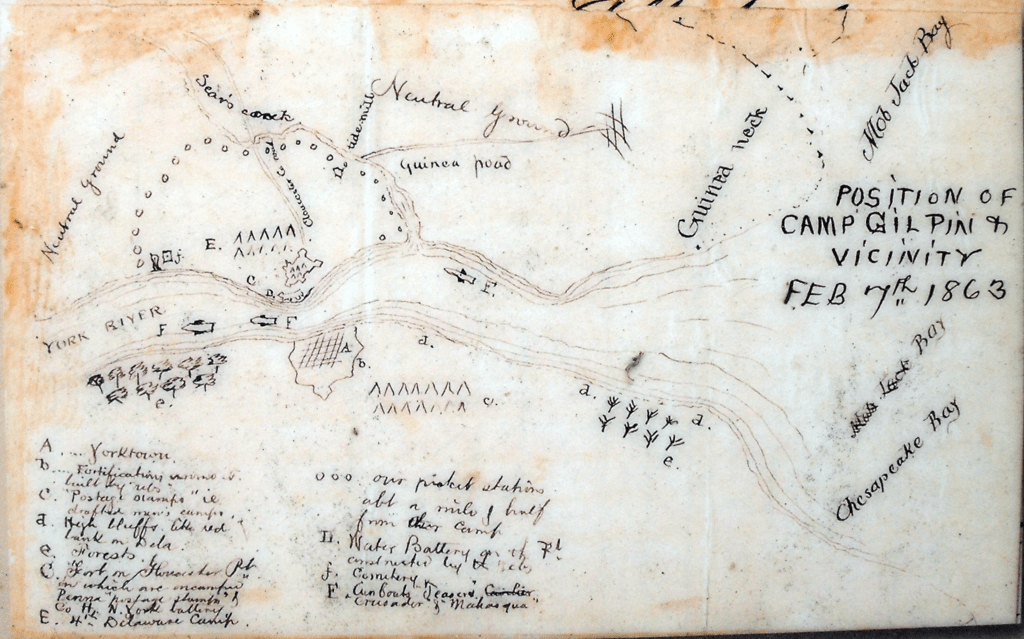 Neutral Ground
Sear's creek
Tide mill
Neutral Ground
Guinea road
Gloucester
Guinea neck
Mob Jack Bay
POSITION OF
CAMP GILPIN &
VICINITY
FEB 7th 1863
E.
f.
C
D.
F.
F
F
YORK RIVER
A
b.
d.
c.
e.
d.
d.
e.
Mob Jack Bay
Chesapeake Bay
A .... Yorktown
b .... Fortifications around it
built by rebs
c. "Postage stamps" ie
drafted men's camps
d. High bluffs like red
bank in Dela.
e. Forests
C. Fort on Gloucester Pt
in which are encamped
Penna "postage stamps" &
Co H. N. York battery
E. 4th Delaware Camp.
o o o. our picket stations
abt a mile & half
from camp
D. Water Battery on the Pt
constructed by the rebs
f. Cemetery
F. Gun boats "Teaser", 
"Crusader" & "Mahaska"